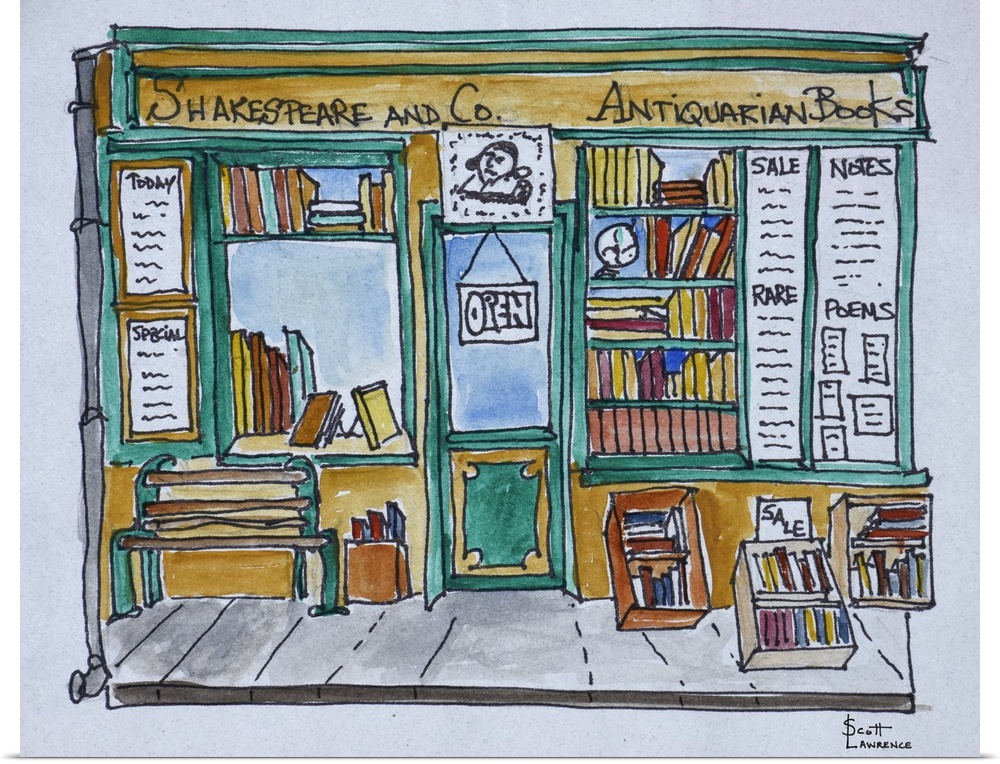 SHAKESPEARE AND CO. ANTIQUARIAN BOOKS
TODAY
SPECIAL
OPEN
SALE
RARE
NOTES
POEMS
SALE
SCOTT
LAWRENCE